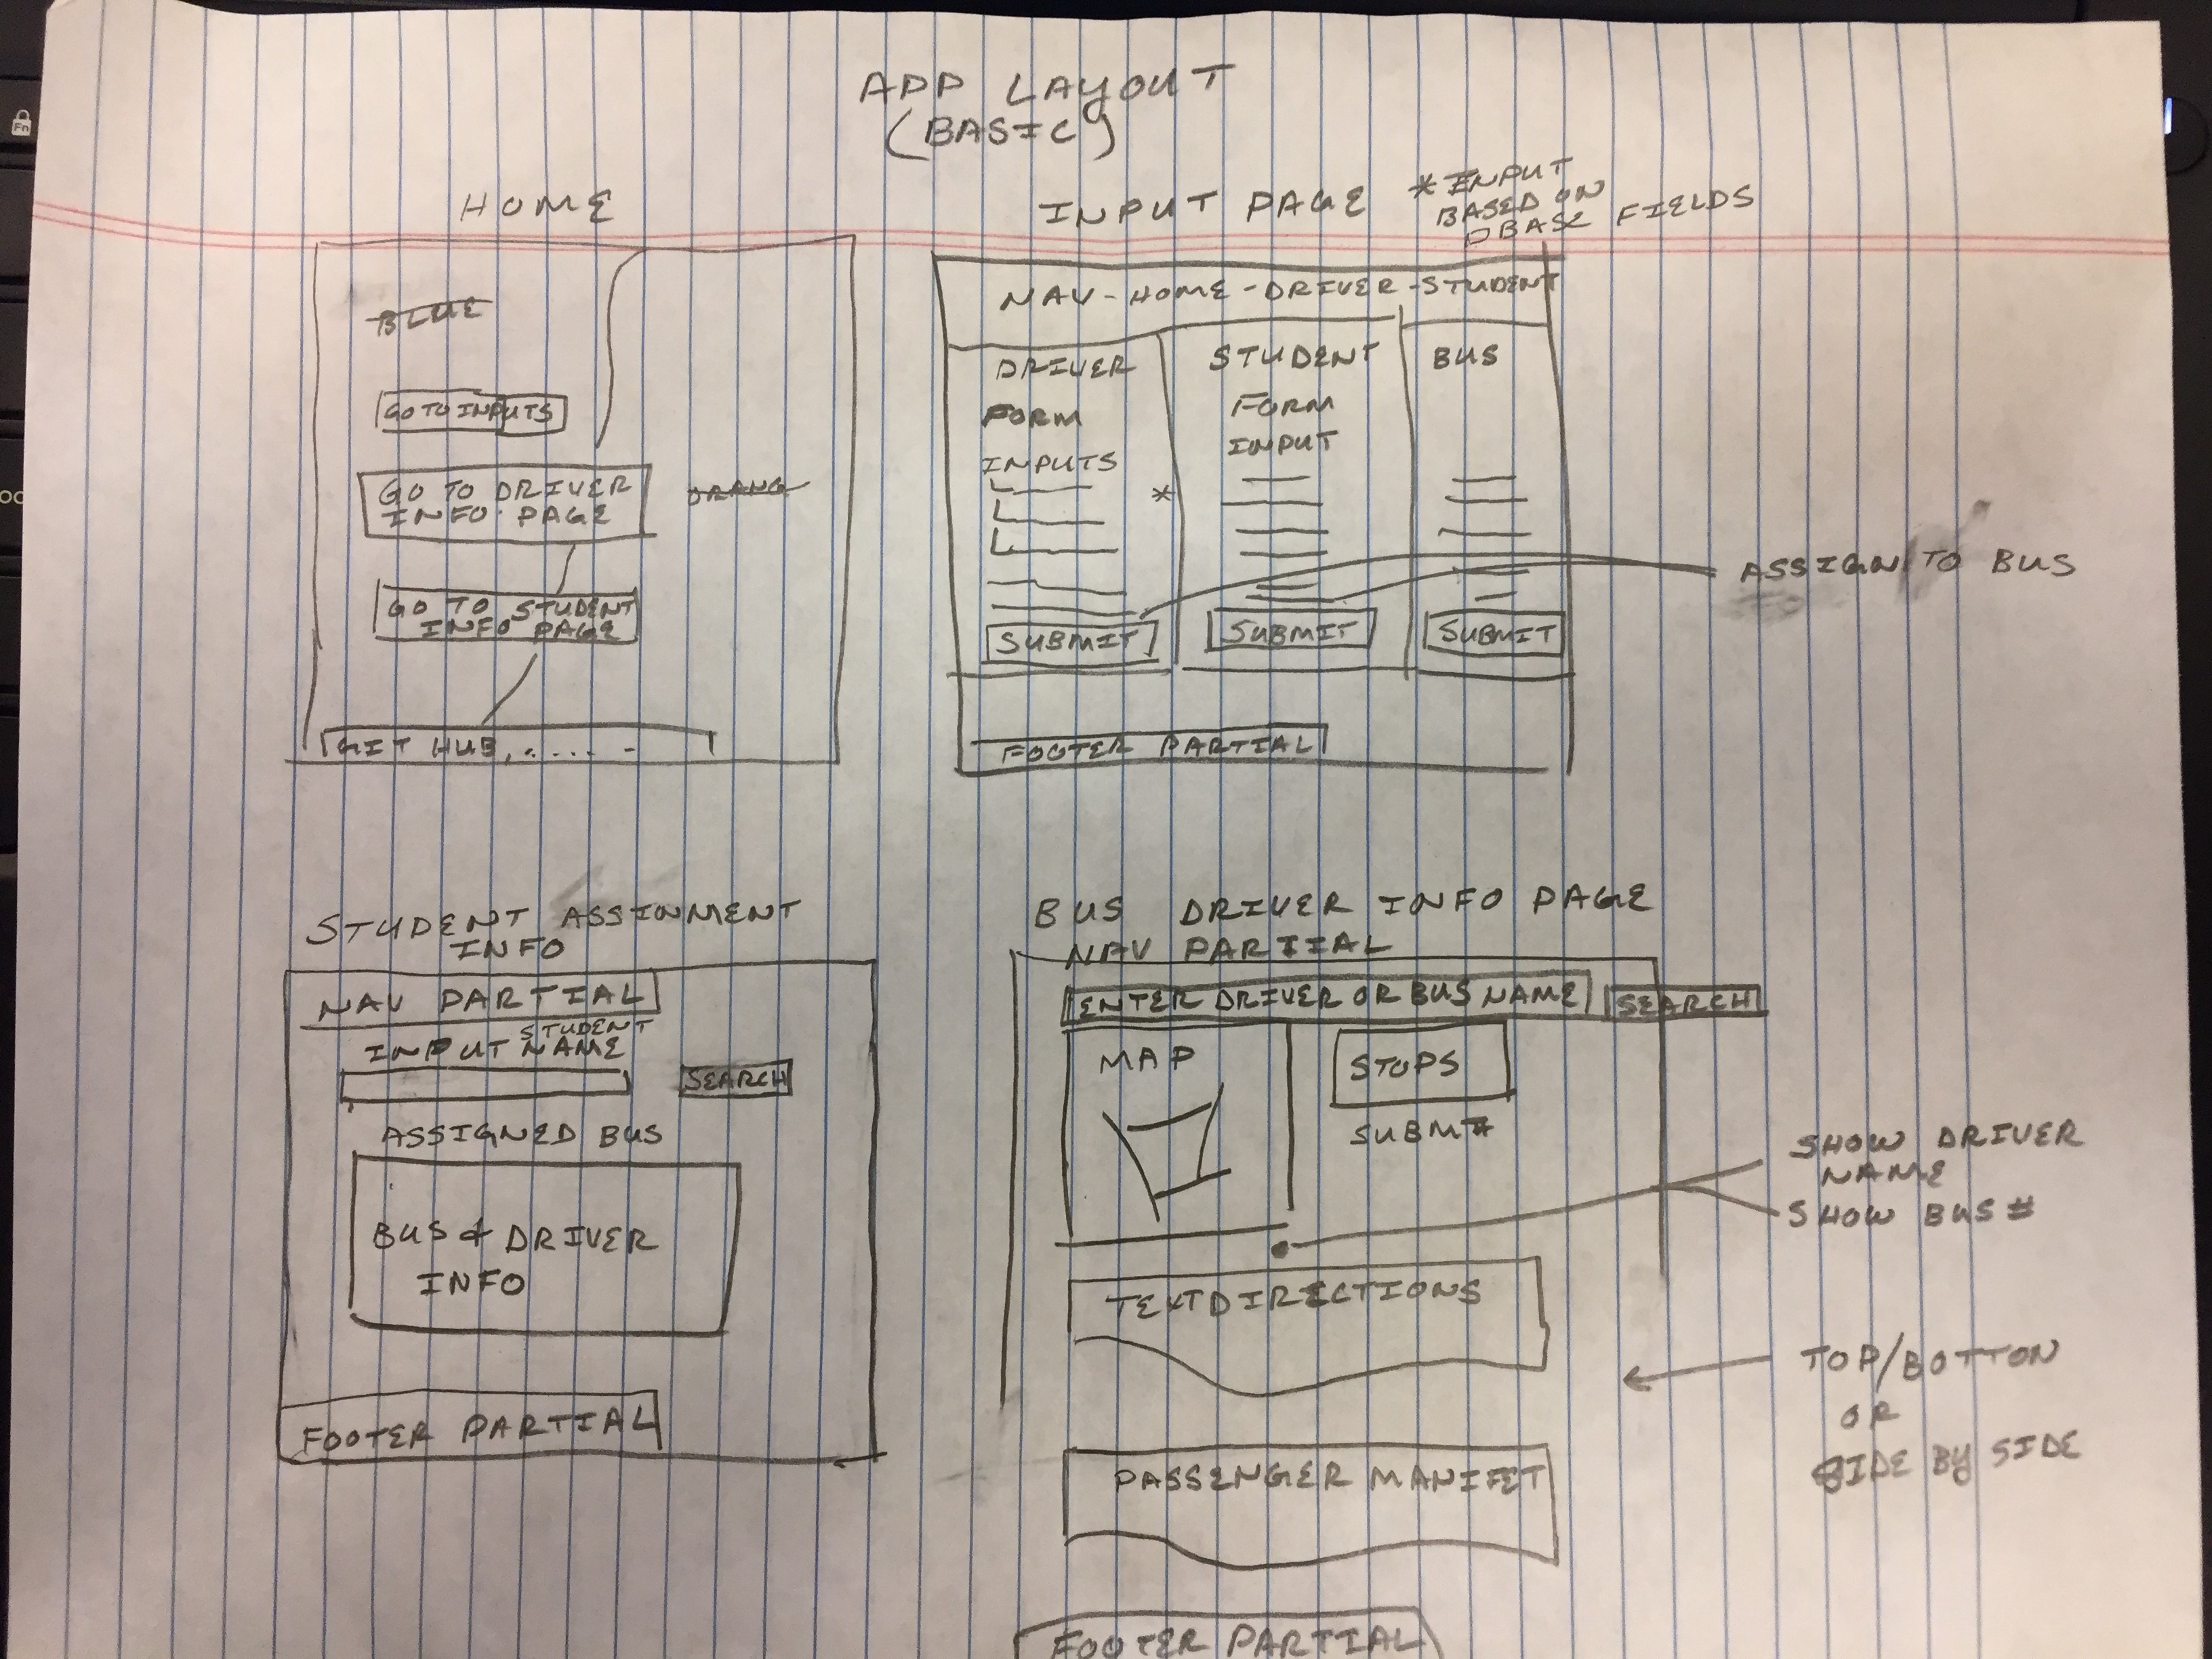 APP LAYOUT
(BASIC)
HOME
BLUE
GO TO INPUTS
GO TO DRIVER
INFO PAGE
ORANG
GO TO STUDENT
INFO PAGE
GIT HUB, . . . . . -
INPUT PAGE
* INPUT
BASED ON
DBASE FIELDS
NAV - HOME - DRIVER - STUDENT
DRIVER
FORM
INPUTS
*
SUBMIT
STUDENT
FORM
INPUT
SUBMIT
BUS
SUBMIT
ASSIGN TO BUS
FOOTER PARTIAL
STUDENT ASSINMENT
INFO
NAV PARTIAL
INPUT STUDENT NAME
SEARCH
ASSIGNED BUS
BUS & DRIVER
INFO
FOOTER PARTIAL
BUS DRIVER INFO PAGE
NAV PARTIAL
ENTER DRIVER OR BUS NAME
SEARCH
MAP
STOPS
SUBMIT
SHOW DRIVER
NAME
SHOW BUS #
TEXT DIRECTIONS
TOP/BOTTON
OR
SIDE BY SIDE
PASSENGER MANIFET
FOOTER PARTIAL
Fn